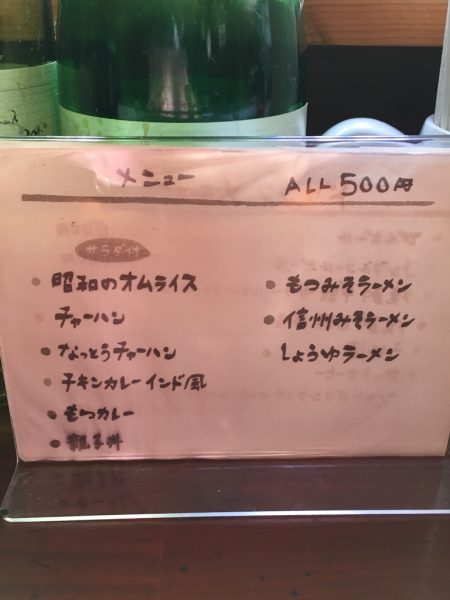 メニュー ALL 500円
サラダ付
• 昭和のオムライス
チャーハン
• なっとうチャーハン
• チキンカレーインド風
• もつカレー
• 親子丼
• もつみそラーメン
• 信州みそラーメン
しょうゆラーメン